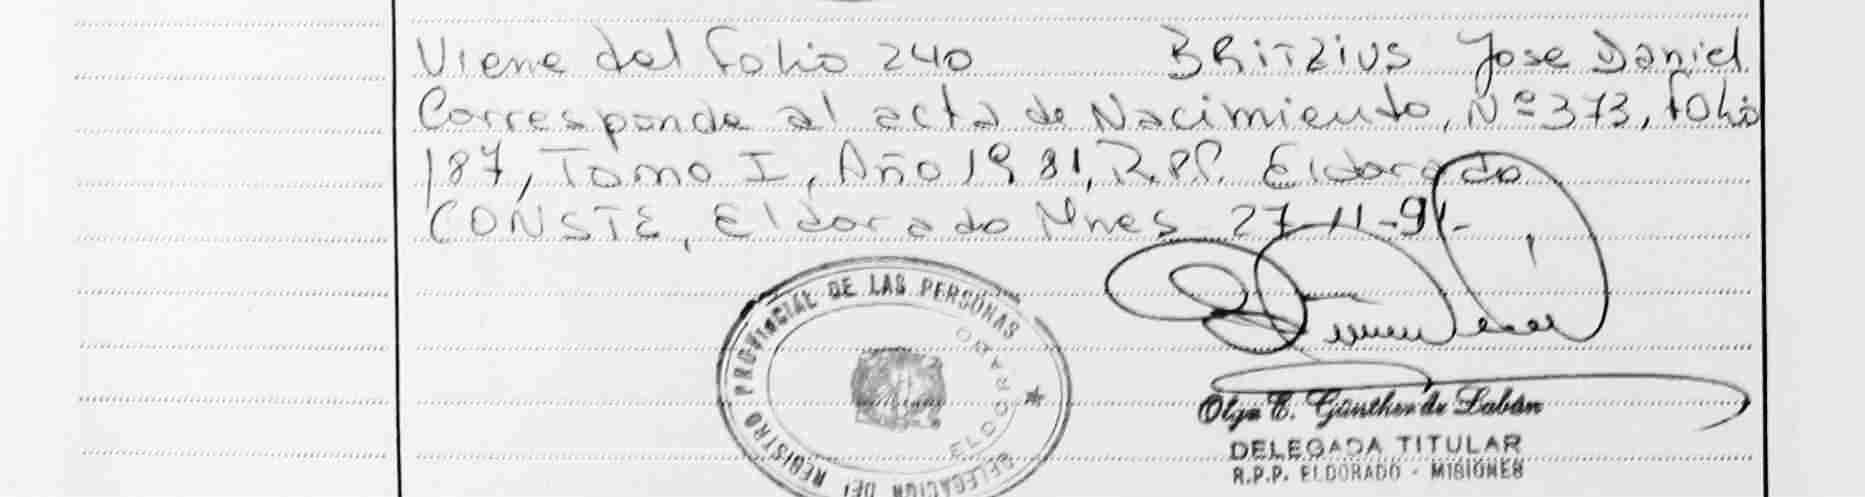 Viene del folio 240 BRITZIUS Jose Daniel
Corresponde al acta de Nacimiento, Nº 373, folio
187, Tomo I, Año 1981, R.P.P. Eldorado
CONSTE, Eldorado Mnes 27-11-91-
REGISTRO PROVINCIAL DE LAS PERSONAS
DELEGACION DEL
ELDORADO
Olga E. Günther de Labán
DELEGADA TITULAR
R.P.P. ELDORADO - MISIONES